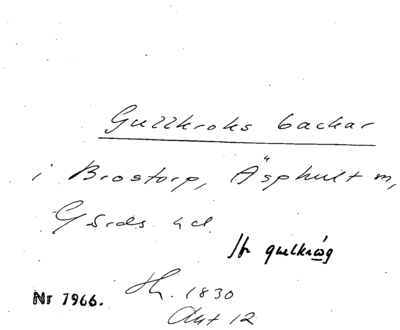 Gullkroks backar
i Brostorp, Äsphult sn,
Gärds hd.
jfr gullkrog
Nr 7966.
Sk. 1830
Akt 12